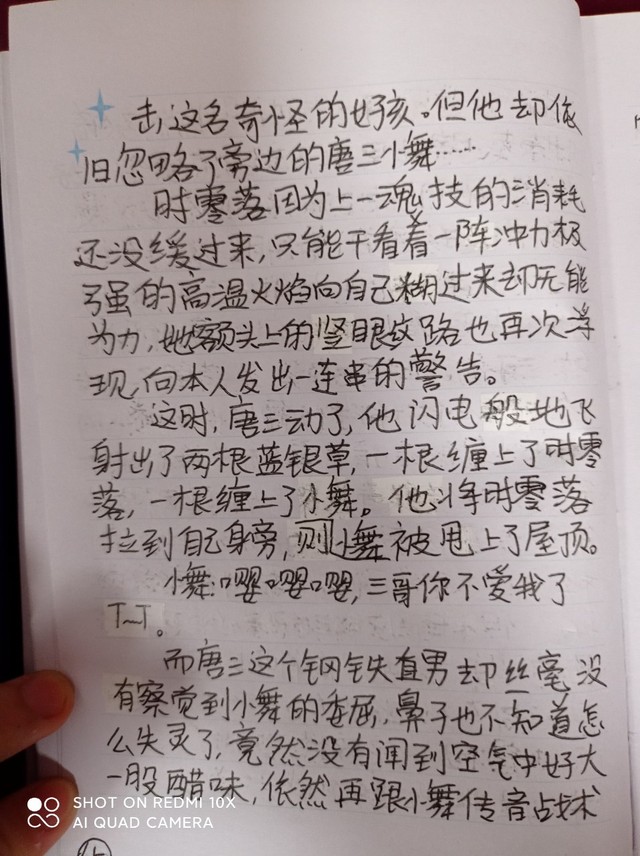 击这名奇怪的好孩。但他却依
旧忽略了旁边的唐三小舞……
时零落因为上一魂技的消耗
还没缓过来,只能干看着一阵冲力极
强的高温火焰向自己糊过来却无能
为力,她额头上的竖眼纹路也再次浮
现,向本人发出一连串的警告。
这时,唐三动了,他闪电般地飞
射出了两根蓝银草,一根缠上了时零
落,一根缠上了小舞。他将时零落
拉到自己身旁,则小舞被甩上了屋顶。
小舞:嘤嘤嘤,三哥你不爱我了
T~T。
而唐三这个钢铁直男却丝毫没
有察觉到小舞的委屈,鼻子也不知道怎
么失灵了,竟然没有闻到空气中好大
一股醋味,依然再跟小舞传音战术
SHOT ON REDMI 10X
AI QUAD CAMERA